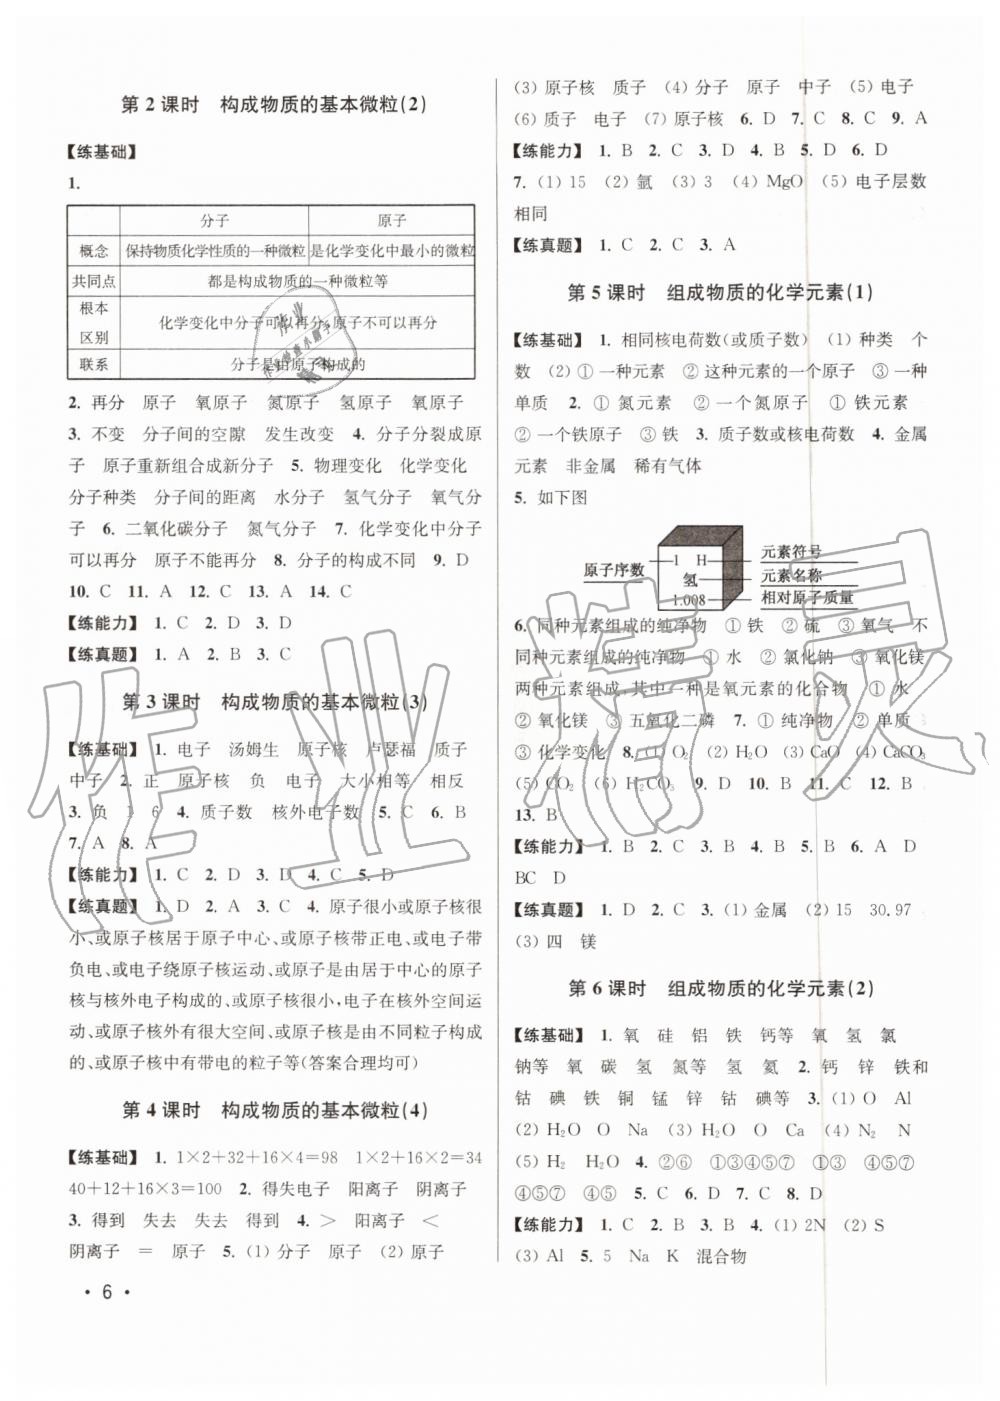 第2课时　构成物质的基本微粒(2)
【练基础】
1.
分子　原子
概念　保持物质化学性质的一种微粒　是化学变化中最小的微粒
共同点　都是构成物质的一种微粒等
根本区别　化学变化中分子可以再分,原子不可以再分
联系　分子是由原子构成的
2. 再分　原子　氧原子　氮原子　氢原子　氧原子
3. 不变　分子间的空隙　发生改变　4. 分子分裂成原
子　原子重新组合成新分子　5. 物理变化　化学变化
分子种类　分子间的距离　水分子　氢气分子　氧气分
子　6. 二氧化碳分子　氮气分子　7. 化学变化中分子
可以再分　原子不能再分　8. 分子的构成不同　9. D
10. C　11. A　12. C　13. A　14. C
【练能力】 1. C　2. D　3. D
【练真题】 1. A　2. B　3. C
第3课时　构成物质的基本微粒(3)
【练基础】 1. 电子　汤姆生　原子核　卢瑟福　质子
中子　2. 正　原子核　负　电子　大小相等　相反
3. 负　1　6　4. 质子数　核外电子数　5. C　6. B
7. A　8. A
【练能力】 1. C　2. D　3. D　4. C　5. D
【练真题】 1. D　2. A　3. C　4. 原子很小或原子核很
小、或原子核居于原子中心、或原子核带正电、或电子带
负电、或电子绕原子核运动、或原子是由居于中心的原子
核与核外电子构成的、或原子核很小,电子在核外空间运
动、或原子核外有很大空间、或原子核是由不同粒子构成
的、或原子核中有带电的粒子等(答案合理均可)
第4课时　构成物质的基本微粒(4)
【练基础】 1. 1×2+32+16×4=98　1×2+16×2=34
40+12+16×3=100　2. 得失电子　阳离子　阴离子
3. 得到　失去　失去　得到　4. ＞　阳离子　＜
阴离子　=　原子　5. (1) 分子　原子　(2) 原子
• 6 •
(3) 原子核　质子　(4) 分子　原子　中子　(5) 电子
(6) 质子　电子　(7) 原子核　6. D　7. C　8. C　9. A
【练能力】 1. B　2. C　3. D　4. B　5. D　6. D
7. (1) 15　(2) 氩　(3) 3　(4) MgO　(5) 电子层数
相同
【练真题】 1. C　2. C　3. A
第5课时　组成物质的化学元素(1)
【练基础】 1. 相同核电荷数(或质子数)　(1) 种类　个
数　(2) ① 一种元素　② 这种元素的一个原子　③ 一种
单质　2. ① 氮元素　② 一个氮原子　① 铁元素
② 一个铁原子　③ 铁　3. 质子数或核电荷数　4. 金属
元素　非金属　稀有气体
5. 如下图
原子序数　1　H　元素符号
氢　元素名称
1.008　相对原子质量
6. 同种元素组成的纯净物　① 铁　② 硫　③ 氧气　不
同种元素组成的纯净物　① 水　② 氯化钠　③ 氧化镁
两种元素组成,其中一种是氧元素的化合物　① 水
② 氧化镁　③ 五氧化二磷　7. ① 纯净物　② 单质
③ 化学变化　8. (1) O₂　(2) H₂O　(3) CaO　(4) CaCO₃
(5) CO₂　(6) H₂CO₃　9. D　10. B　11. C　12. B
13. B
【练能力】 1. B　2. C　3. B　4. B　5. B　6. A　D
BC　D
【练真题】 1. D　2. C　3. (1) 金属　(2) 15　30.97
(3) 四　镁
第6课时　组成物质的化学元素(2)
【练基础】 1. 氧　硅　铝　铁　钙等　氧　氢　氯
钠等　氧　碳　氢　氮等　氢　氦　2. 钙　锌　铁和
钴　碘　铁　铜　锰　锌　钴　碘等　3. (1) O　Al
(2) H₂O　O　Na　(3) H₂O　O　Ca　(4) N₂　N
(5) H₂　H₂O　4. ②⑥　①③④⑤⑦　①③
④⑤⑦　④⑤　5. C　6. D　7. C　8. D
【练能力】 1. C　2. B　3. D　4. (1) 2N　(2) S
(3) Al　5. 5　Na　K　混合物
作业精灵